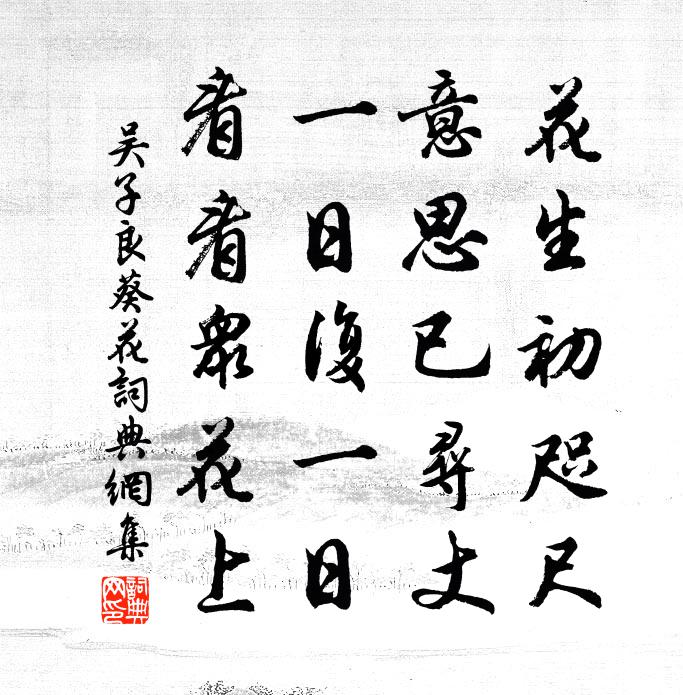 花生初咫尺
意思已尋丈
一日復一日
看看眾花上
吳子良葵花詞典網集
詞典網印